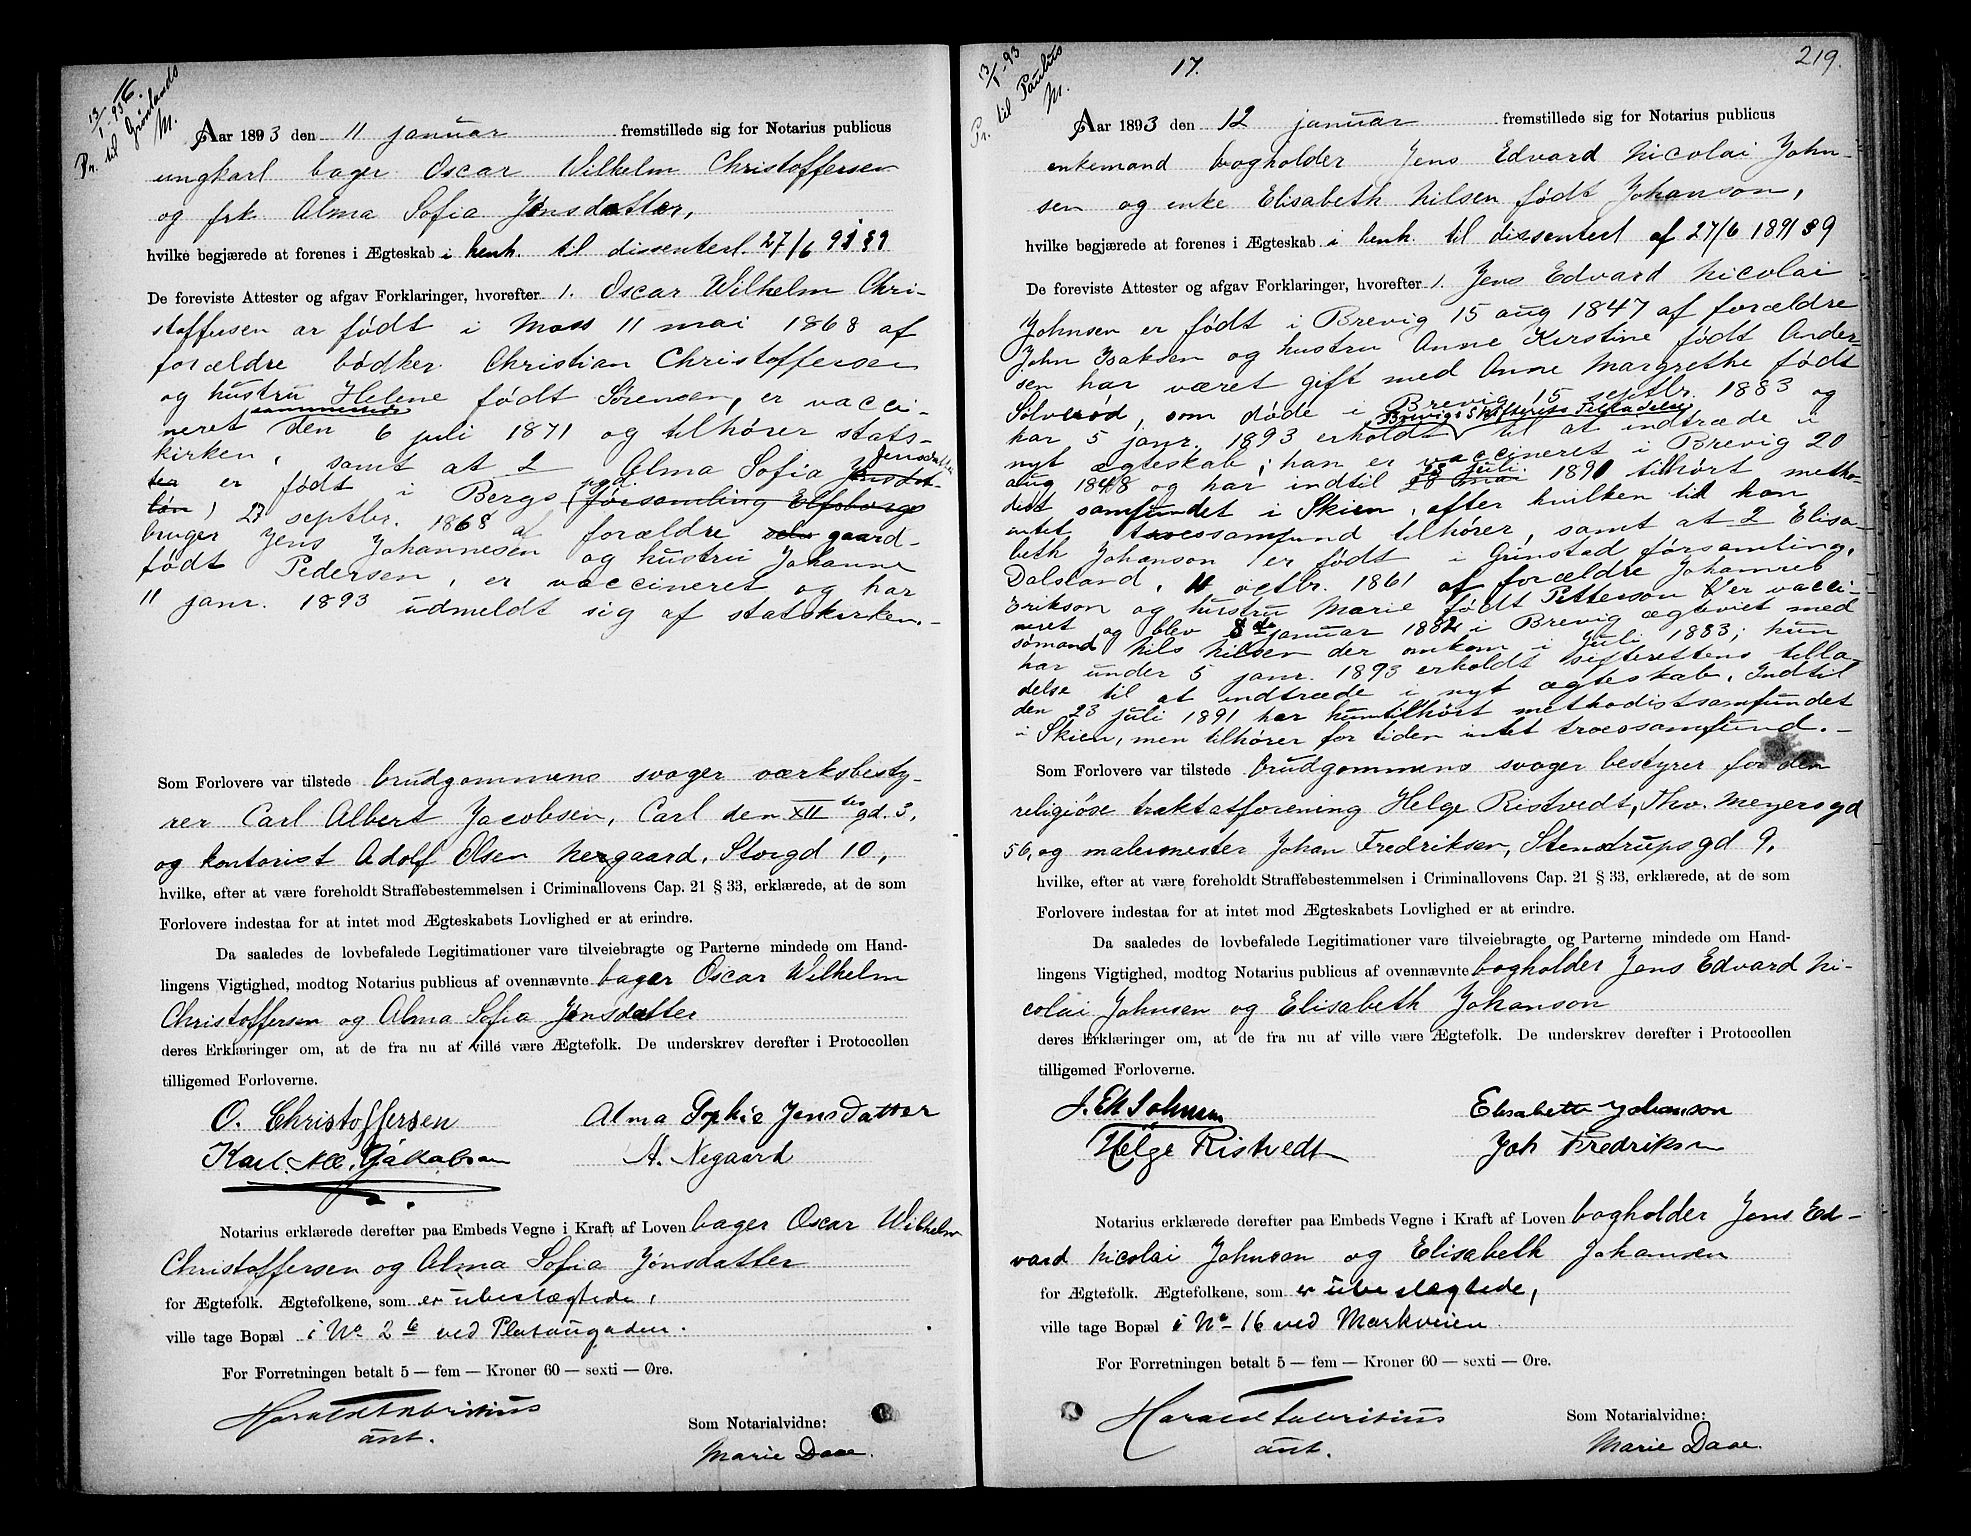 16.
13/1-93
Pr. til Grønlands
M.
Aar 1893 den 11 januar fremstillede sig for Notarius publicus
ungkarl bager Oscar Wilhelm Christoffersen
og frk Alma Sofia Jensdatter,
hvilke begjærede at forenes i Ægteskab i henh. til dissenterl. 27/6 91 § 9
De foreviste Attester og afgav Forklaringer, hvorefter 1. Oscar Wilhelm Chri-
stoffersen er født i Moss 11 mai 1868 af
forældre bødker Christian Christoffersen
og hustru Helene født Sørensen, er vacci-
neret sammesteds den 6 juli 1871 og tilhører stats-
kirken, samt at 2 Alma Sofia Jensdatter
er født i Bergs (församling Elfsborgs
län) 23 septbr. 1868 af forældre gaard-
bruger Jens Johannesen og hustru Johanne
født Pedersen, er vaccineret og har
11 janr. 1893 udmeldt sig af statskirken.-
Som Forlovere var tilstede brudgommens svoger værksbesty-
rer Carl Albert Jacobsen, Carl den XII tes gd. 3,
og kontorist Adolf Olsen Nergaard, Storgd 10,
hvilke, efter at være foreholdt Straffebestemmelsen i Criminallovens Cap. 21 § 33, erklærede, at de som
Forlovere indestaa for at intet mod Ægteskabets Lovlighed er at erindre.
Da saaledes de lovbefalede Legitimationer vare tilveiebragte og Parterne mindede om Hand-
lingens Vigtighed, modtog Notarius publicus af ovennævnte bager Oscar Wilhelm
Christoffersen og Alma Sofia Jensdatter
deres Erklæringer om, at de fra nu af ville være Ægtefolk. De underskrev derefter i Protocollen
tilligemed Forloverne.
O. Christoffersen Alma Sophie Jensdatter
Karl. Alb. Jakobsen A. Negaard
Notarius erklærede derefter paa Embeds Vegne i Kraft af Loven bager Oscar Wilhelm
Christoffersen og Alma Sofia Jönsdatter
for Ægtefolk. Ægtefolkene, som er ubeslægtede,
ville tage Bopæl i No 2 b ved Platougaden.
For Forretningen betalt 5 — fem — Kroner 60 — sexti — Øre.
Harald Fabritius
aut.
Som Notarialvidne:
Marie Daae.
219.
17.
13/1-93
Pr. til Paulus
M.
Aar 1893 den 12 januar fremstillede sig for Notarius publicus
enkemand bogholder Jens Edvard Nicolai John-
sen og enke Elisabeth Nilsen født Johanson,
hvilke begjærede at forenes i Ægteskab i henh. til dissenterl af 27/6 1891 § 9
De foreviste Attester og afgav Forklaringer, hvorefter 1. Jens Edvard Nicolai
Johnsen er født i Brevig 15 aug 1847 af forældre
John Isaksen og hustru Anne Kirstine født Ander-
sen har været gift med Anne Margrethe født
Solverød, som døde i Brevig 15 septbr. 1883 og
har 5 janr. 1893 erholdt Brevigs Skifterets Tilladelse til at indtræde i
nyt ægteskab; han er vaccineret i Brevig 20
aug 1848 og har indtil 23 juli 1891 tilhørt metho-
distsamfundet i Skien, efter hvilken tid han
intet troessamfund tilhører, samt at 2 Elisa-
beth Johanson er født i Grinstad församling,
Dalsland, 4 octbr. 1861 af forældre Johannes
Erikson og hustru Marie født Petterson er vacci-
neret og blev 8de januar 1882 i Brevig ægteviet med
sømand Nils Nilsen der omkom i juli 1883; hun
har under 5 janr. 1893 erholdt skifterettens tilla-
delse til at indtræde i nyt ægteskab. Indtil
den 23 juli 1891 har hun tilhørt methodistsamfundet
i Skien, men tilhører for tiden intet troessamfund.-
Som Forlovere var tilstede brudgommens svoger bestyrer for den
religiøse traktatforening Helge Ristvedt, Thv. Meyers gd
56, og malermester Johan Fredriksen, Stenstrups gd 9,
hvilke, efter at være foreholdt Straffebestemmelsen i Criminallovens Cap. 21 § 33, erklærede, at de som
Forlovere indestaa for at intet mod Ægteskabets Lovlighed er at erindre.
Da saaledes de lovbefalede Legitimationer vare tilveiebragte og Parterne mindede om Hand-
lingens Vigtighed, modtog Notarius publicus af ovennævnte bogholder Jens Edvard Ni-
colai Johnsen og Elisabeth Johanson
deres Erklæringer om, at de fra nu af ville være Ægtefolk. De underskrev derefter i Protocollen
tilligemed Forloverne.
J. EN Johnsen Elisabeth Johanson
Helge Ristvedt Joh Fredriksen
Notarius erklærede derefter paa Embeds Vegne i Kraft af Loven bogholder Jens Ed-
vard Nicolai Johnsen og Elisabeth Johansen
for Ægtefolk. Ægtefolkene, som er ubeslægtede,
ville tage Bopæl i No 16 ved Markveien.
For Forretningen betalt 5 — fem — Kroner 60 — sexti — Øre.
Harald Fabritius
aut.
Som Notarialvidne:
Marie Daae.